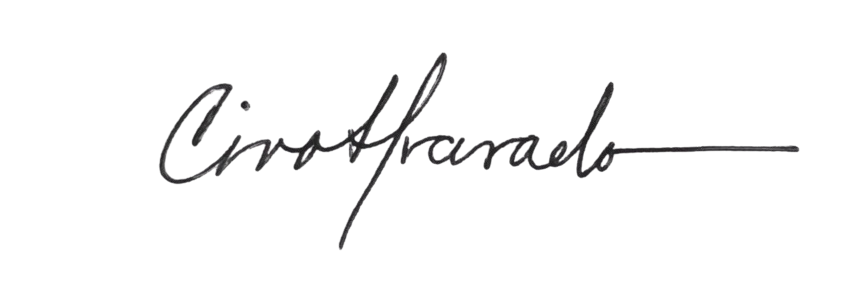 Ciro Alvarado